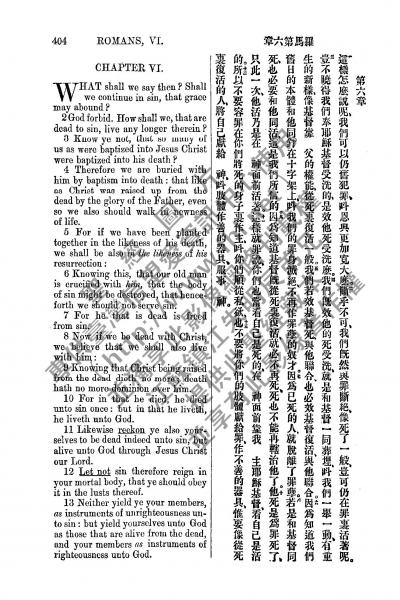 404 ROMANS, VI.
CHAPTER VI.
WHAT shall we say then? Shall
we continue in sin, that grace
may abound?
2 God forbid. How shall we, that are
dead to sin, live any longer therein?
3 Know ye not, that so many of
us as were baptized into Jesus Christ
were baptized into his death?
4 Therefore we are buried with
him by baptism into death: that like
as Christ was raised up from the
dead by the glory of the Father, even
so we also should walk in newness
of life.
5 For if we have been planted
together in the likeness of his death,
we shall be also in the likeness of his
resurrection:
6 Knowing this, that our old man
is crucified with him, that the body
of sin might be destroyed, that hence-
forth we should not serve sin.
7 For he that is dead is freed
from sin.
8 Now if we be dead with Christ,
we believe that we shall also live
with him:
9 Knowing that Christ being raised
from the dead dieth no more; death
hath no more dominion over him.
10 For in that he died, he died
unto sin once: but in that he liveth,
he liveth unto God.
11 Likewise reckon ye also your-
selves to be dead indeed unto sin, but
alive unto God through Jesus Christ
our Lord.
12 Let not sin therefore reign in
your mortal body, that ye should obey
it in the lusts thereof.
13 Neither yield ye your members,
as instruments of unrighteousness un-
to sin: but yield yourselves unto God
as those that are alive from the dead,
and your members as instruments of
righteousness unto God.
羅馬第六章
第六章
這樣怎麽說呢我們可以仍舊犯罪呌恩典更加寬大麽斷乎不可我們既然與罪斷絕像死了一般豈可仍在罪裏活著呢
豈不曉得我們奉耶穌基督受洗的是效他死受洗麽我們既效他的死受洗就是和基督一同葬埋呌我們一舉一動有重
生的新樣像基督靠 父的權能從死裏復活一般我們若效基督死與他聯合也必效基督復活與他聯合因爲知道我們
舊日的本體和他同釘在十字架上呌我們的罪身滅絕不再作罪孽的奴才因爲已死的人就脫離了罪孽若是和基督同
死也必要和他同活這是我們所信的因爲知道基督既從死裏復活就必不再死死也不能再轄治他了他死是爲罪死了
只此一次他活乃是在 神面前活著這樣說來你們也當看自己是死的在 神面前靠我 主耶穌基督看自己是活
的所以不要容罪在你們將死的身子裏作主呌你們順從私欲也不要將你們的肢體獻給罪作不善的器具惟要像從死
裏復活的人將自己獻給 神呌肢體作善的器具服事 神